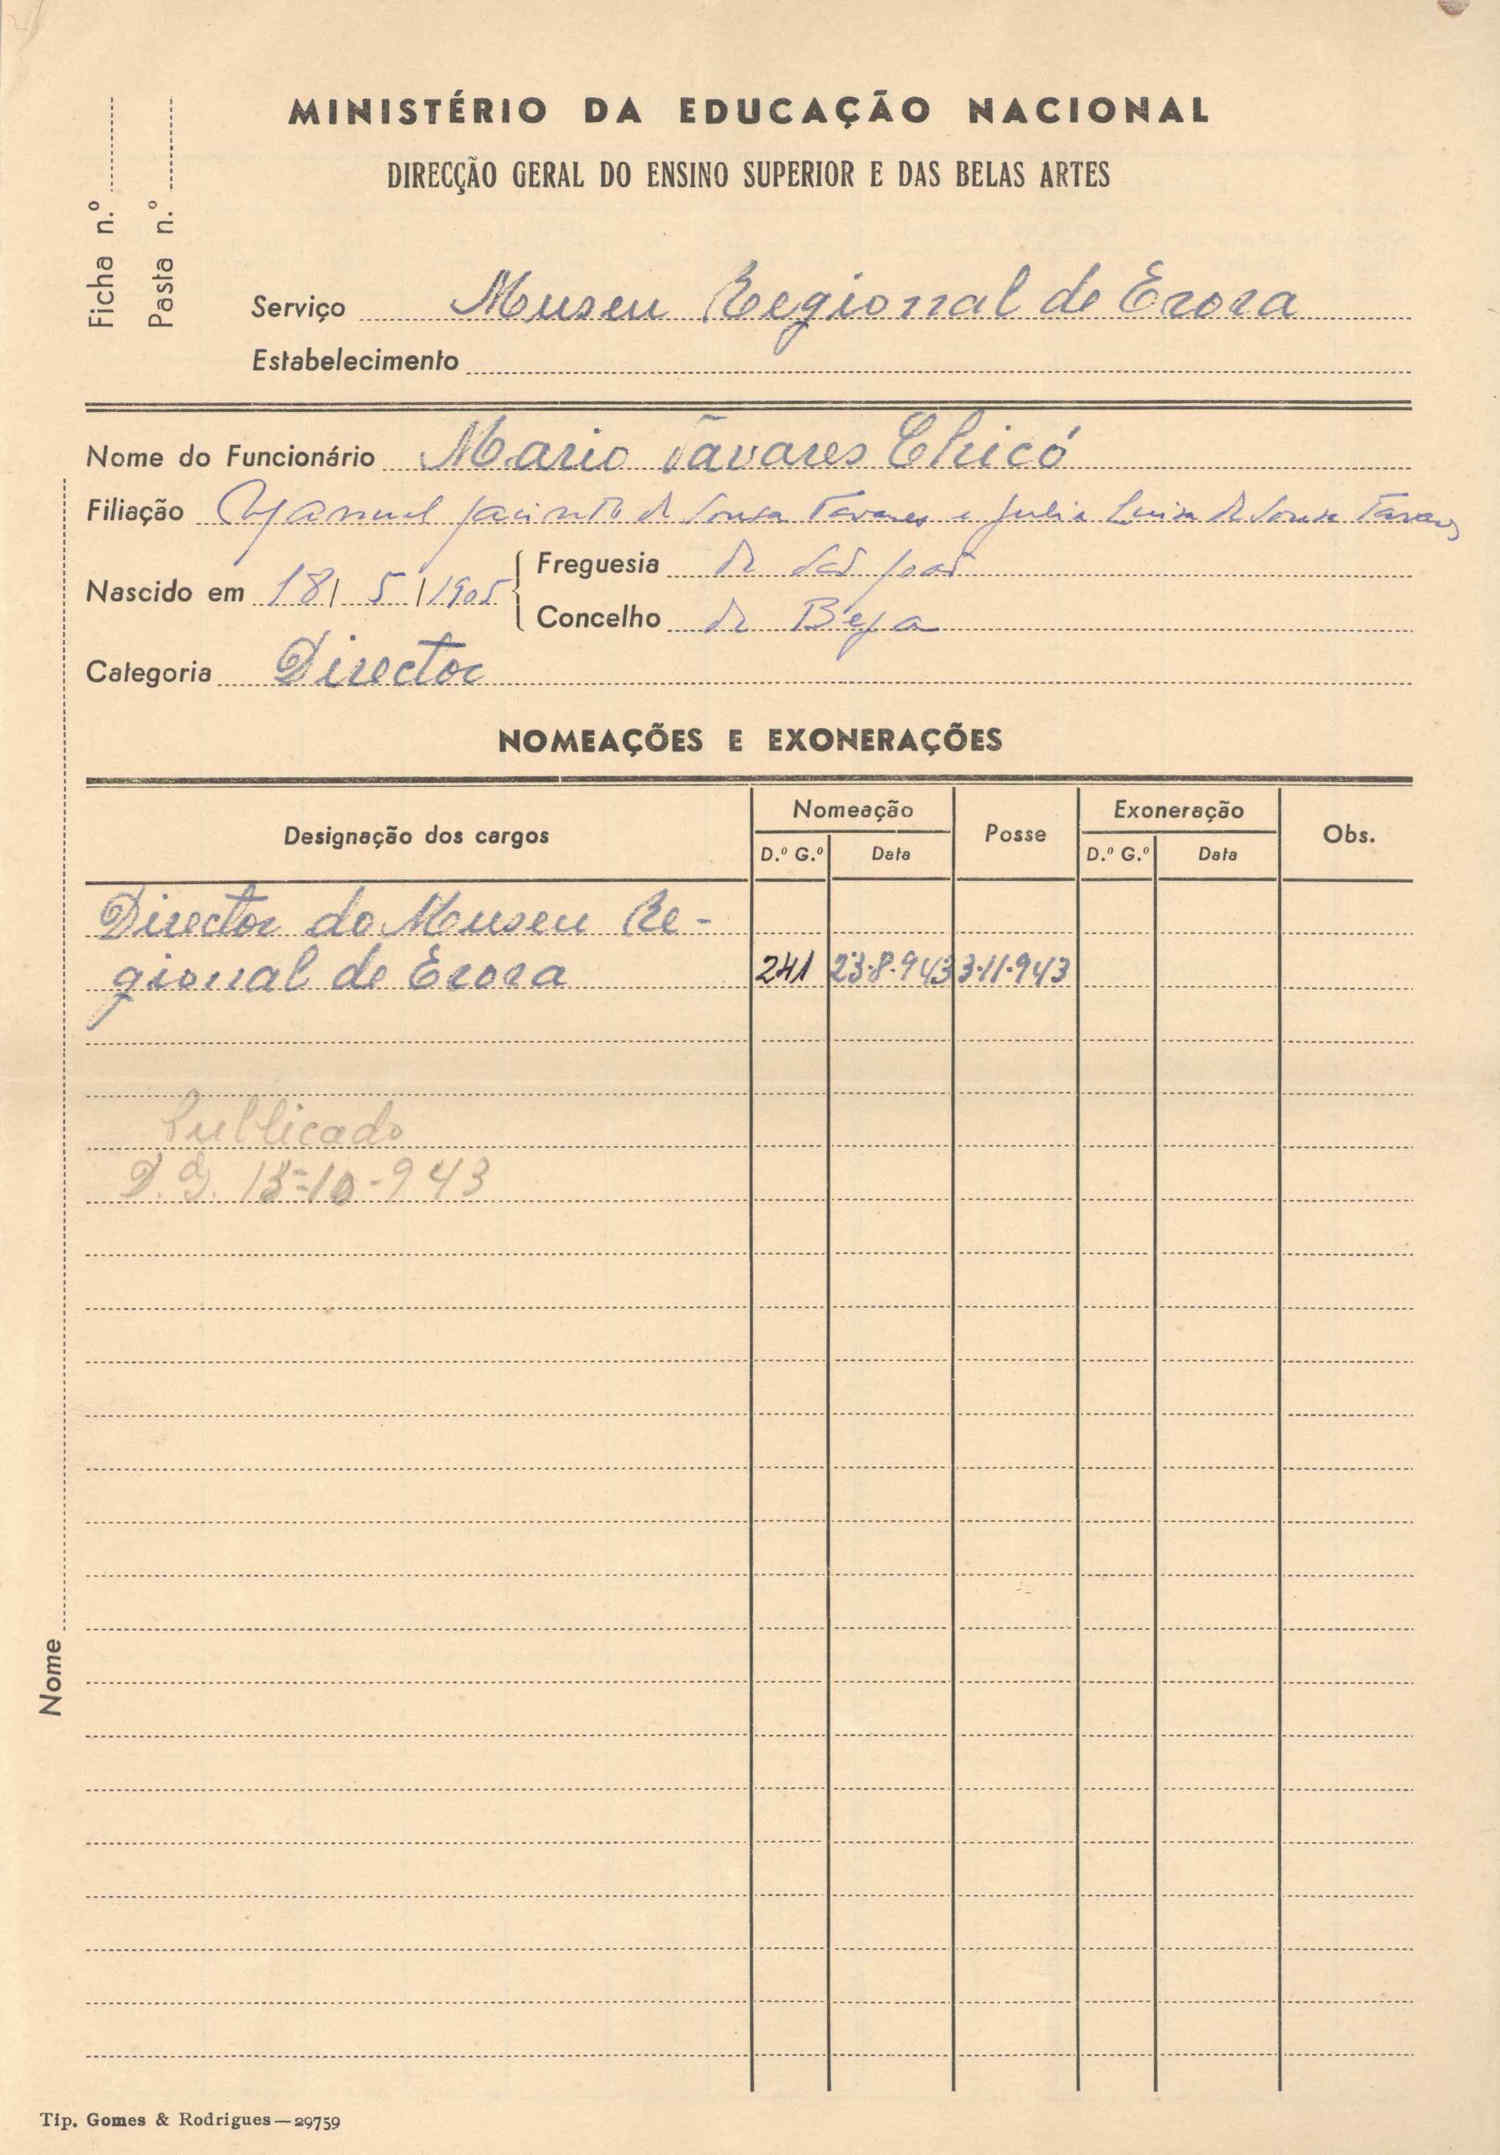 MINISTÉRIO DA EDUCAÇÃO NACIONAL
DIRECÇÃO GERAL DO ENSINO SUPERIOR E DAS BELAS ARTES
Ficha n.º
Pasta n.º
Serviço Museu Regional de Evora
Estabelecimento
Nome do Funcionário Mario Tavares Chicó
Filiação Manuel Jacinto de Sousa Tavares e Julia Luisa de Sousa Tavares
Nascido em 18/ 5 /1905 Freguesia de São João
Concelho de Beja
Categoria Director
NOMEAÇÕES E EXONERAÇÕES
Designação dos cargos Nomeação Posse Exoneração Obs.
D.º G.º Data D.º G.º Data
Director do Museu Re-
gional de Evora 241 23-8-943 3-11-943
Publicado
D. G. 15-10-943
Nome
Tip. Gomes & Rodrigues—29759